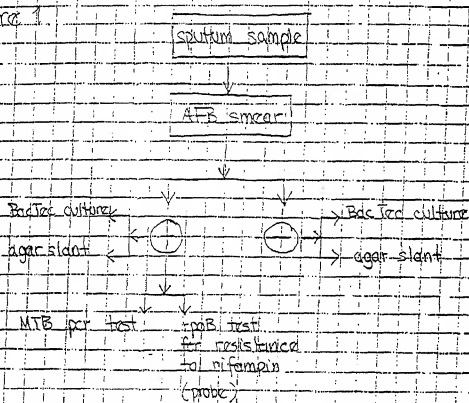 re 1
sputum sample
AFB smear
+ −
BacTec culture
BacTec culture
agar slant
agar slant
MTB pcr test
rpoB test
for resistance
to rifampin
(probe)